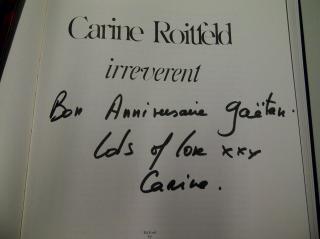 Carine Roitfeld
irreverent
Bon Anniversaire Gaëtan.
Lots of love xxx
Carine.